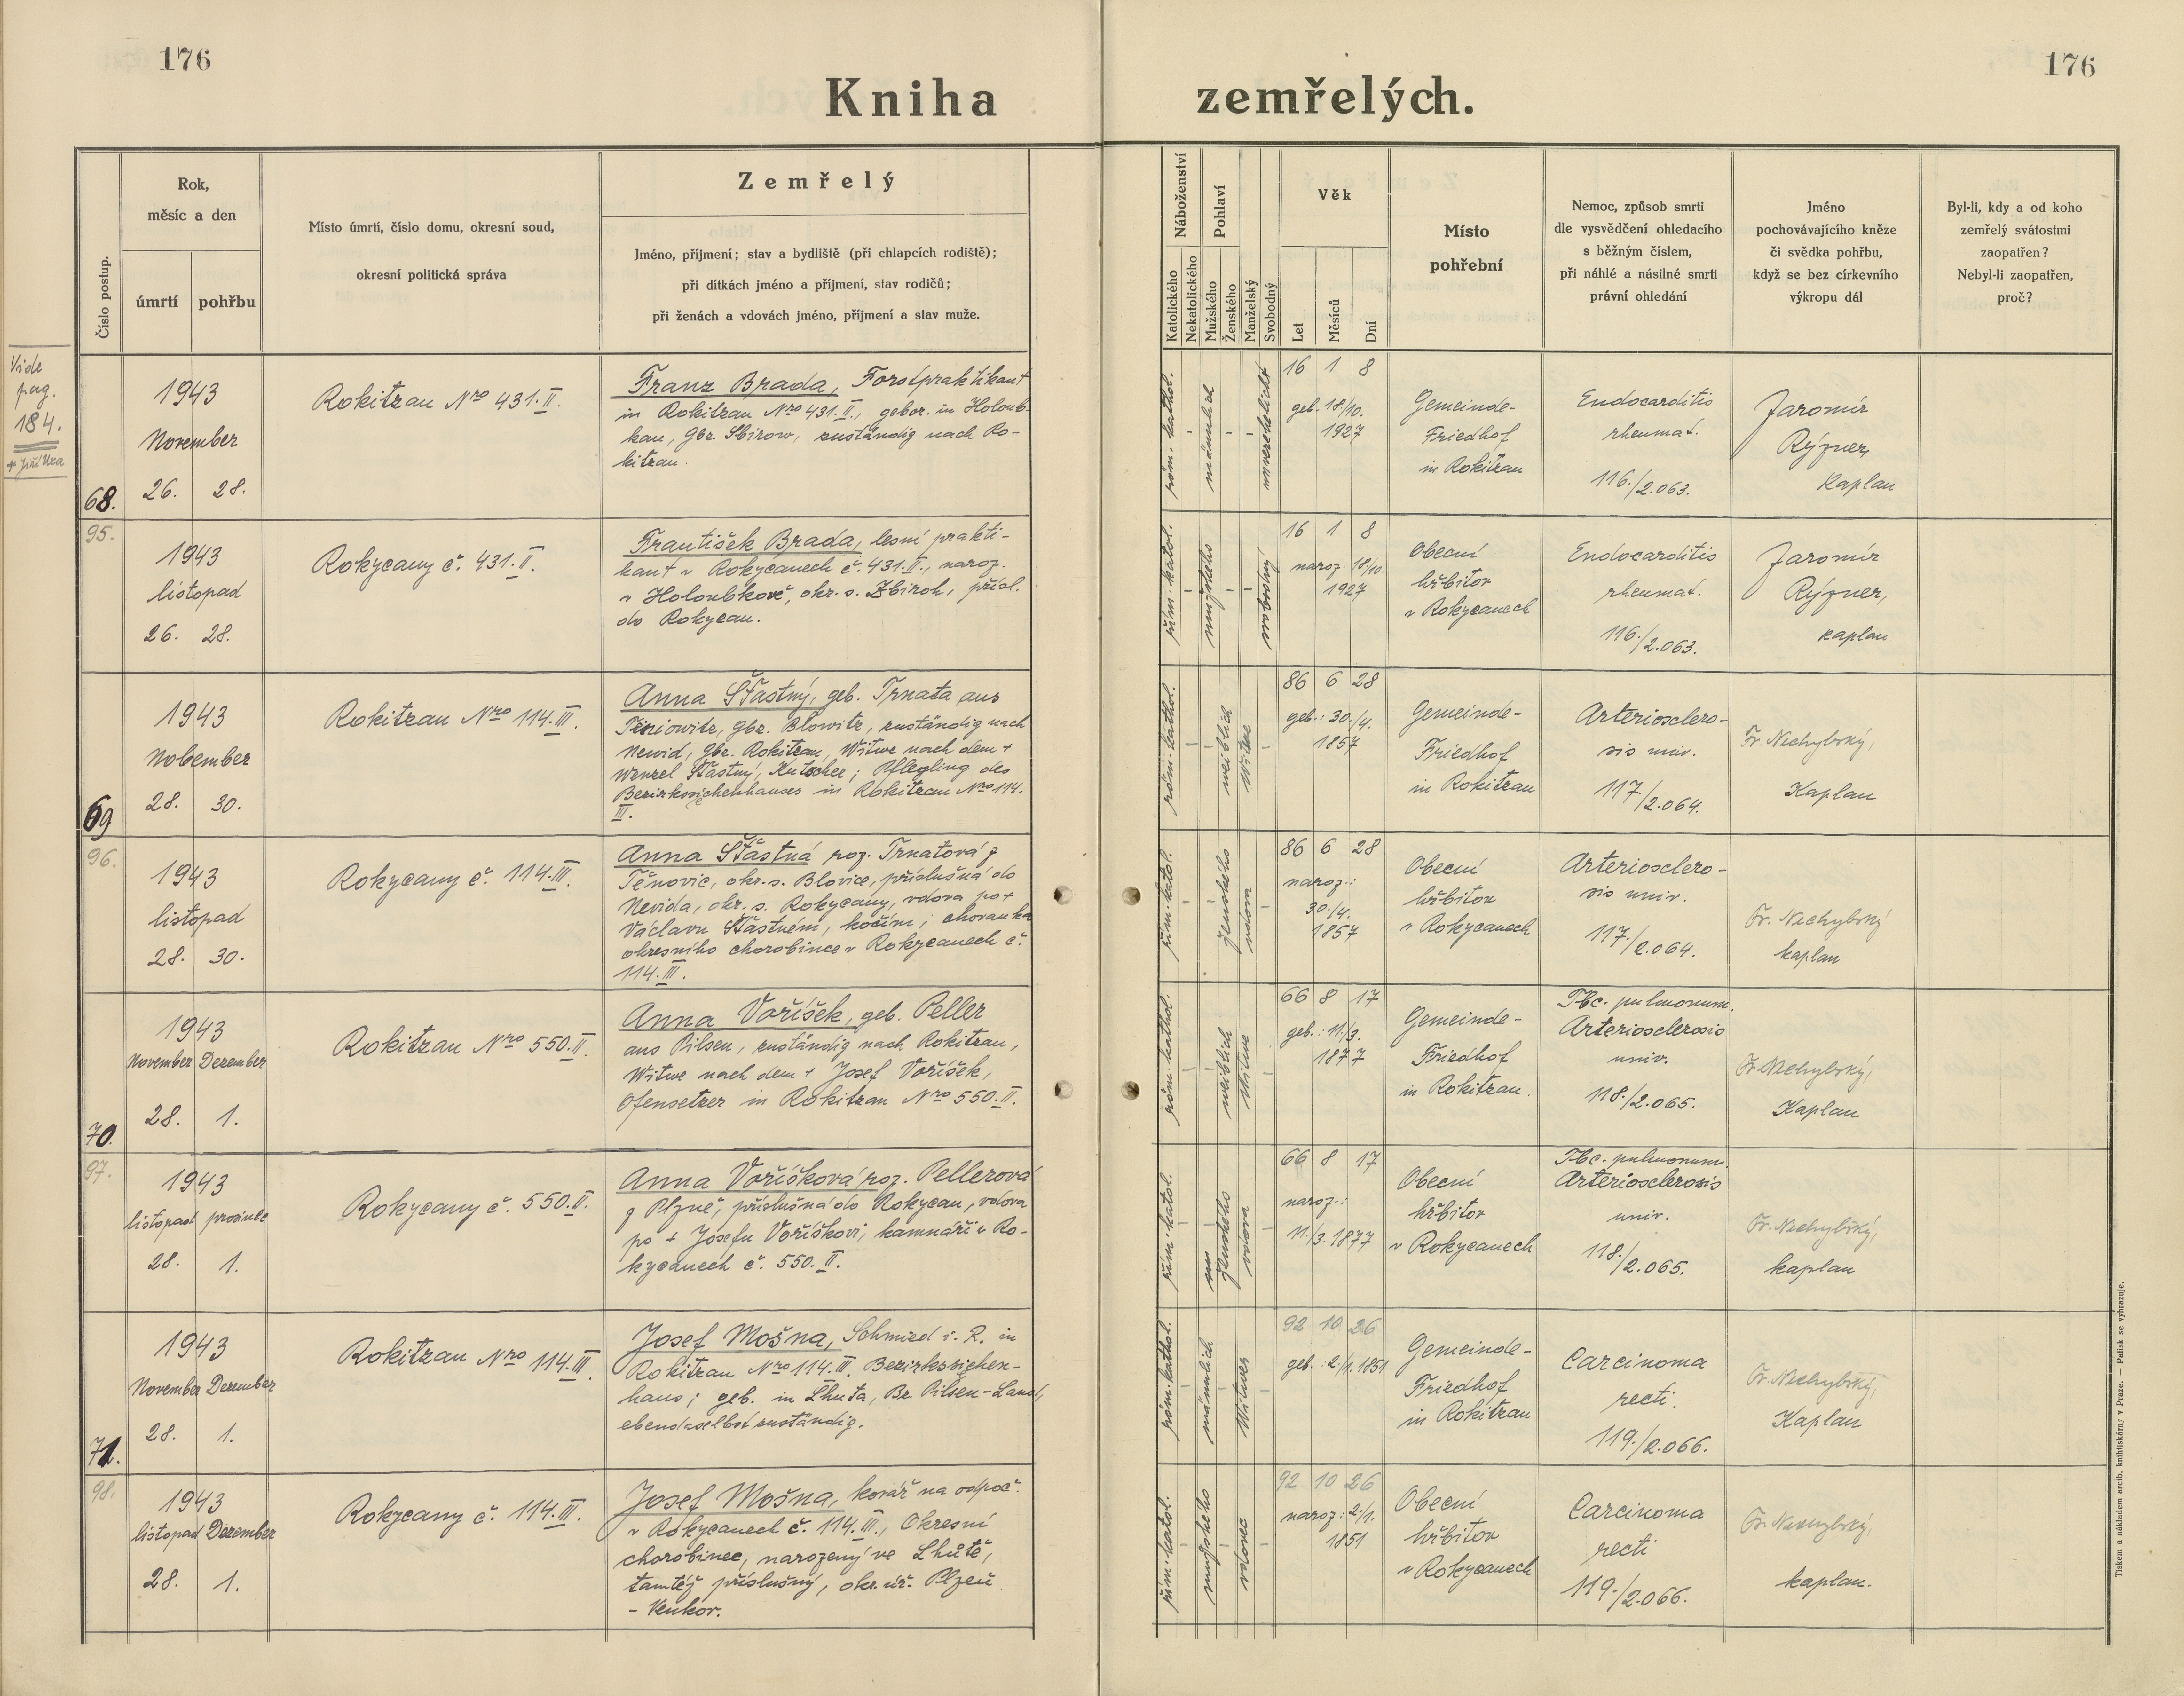 176
176
Kniha zemřelých.
Číslo postup.
Rok,
měsíc a den
úmrtí
pohřbu
Místo úmrtí, číslo domu, okresní soud,
okresní politická správa
Zemřelý
Jméno, příjmení; stav a bydliště (při chlapcích rodiště);
při dítkách jméno a příjmení, stav rodičů;
při ženách a vdovách jméno, příjmení a stav muže.
Náboženství
Katolického
Nekatolického
Pohlaví
Mužského
Ženského
Manželský
Svobodný
Věk
Let
Měsíců
Dní
Místo
pohřební
Nemoc, způsob smrti
dle vysvědčení ohledacího
s běžným číslem,
při náhlé a násilné smrti
právní ohledání
Jméno
pochovávajícího kněze
či svědka pohřbu,
když se bez církevního
výkropu dál
Byl-li, kdy a od koho
zemřelý svátostmi
zaopatřen?
Nebyl-li zaopatřen,
proč?
Vide
pag.
184.
68.
1943
November
26. 28.
Rokitzan Nro 431.II.
Franz Brada, Forstpraktikant
in Rokitzan Nro 431.II., gebor. in Holoub-
kau, Gbz. Sbirow, zuständig nach Ro-
kitzan.
röm. kathol.
-
männlich
-
-
unverehelicht
16 1 8
geb. 18/10.
1927
Gemeinde-
Friedhof
in Rokitzan
Endocarditis
rheumat.
116./2.063.
Jaromír
Rýzner,
Kaplan
95.
1943
listopad
26. 28.
Rokycany č. 431.II.
František Brada, lesní prakti-
kant v Rokycanech č. 431.II., naroz.
v Holoubkově, okr. s. Zbiroh, přísl.
do Rokycan.
řím. katol.
-
mužského
-
-
svobodný
16 1 8
naroz. 18/10.
1927
Obecní
hřbitov
v Rokycanech
Endocarditis
rheumat.
116./2.063.
Jaromír
Rýzner,
kaplan
69
1943
November
28. 30.
Rokitzan Nro 114.III.
Anna Šťastný, geb. Trnata aus
Gbz. Blowitz, zuständig nach
Newid, Gbz. Rokitzan, Witwe nach dem +
Wenzel Šťastný, Kutscher; Pflegling des
Bezirkssiechenhauses in Rokitzan Nro 114.
III.
röm. kathol.
-
-
weiblich
Witwe
-
86 6 28
geb.: 30./4.
1857
Gemeinde-
Friedhof
in Rokitzan
Arteriosclero-
sis univ.
117./2.064.
Fr. Nechybský,
Kaplan
96.
1943
listopad
28. 30.
Rokycany č. 114.III.
Anna Šťastná roz. Trnatová z
Těnovic, okr. s. Blovice, příslušná do
Nevida, okr. s. Rokycany, vdova po +
Václavu Šťastném, kočím; chovanka
okresního chorobince v Rokycanech č.
114.III.
řím. katol.
-
-
ženského
vdova
-
86 6 28
naroz.:
30./4.
1857
Obecní
hřbitov
v Rokycanech
Arteriosclero-
sis univ.
117./2.064.
Fr. Nechybský
kaplan
70.
1943
November Dezember
28. 1.
Rokitzan Nro 550.II.
Anna Voříšek, geb. Peller
aus Pilsen, zuständig nach Rokitzan,
Witwe nach dem + Josef Voříšek,
Ofensetzer in Rokitzan Nro 550.II.
röm. kathol.
-
-
weiblich
Witwe
-
66 8 17
geb.: 11./3.
1877
Gemeinde-
Friedhof
in Rokitzan.
Tbc. pulmonum.
Arteriosclerosis
univ.
118./2.065.
Fr. Nechybský,
Kaplan
97.
1943
listopad prosinec
28. 1.
Rokycany č. 550.II.
Anna Voříšková roz. Pellerová
z Plzně, příslušná do Rokycan, vdova
po + Josefu Voříškovi, kamnáři v Ro-
kycanech č. 550.II.
řím. katol.
-
-
ženského
vdova
-
66 8 17
naroz.:
11./3. 1877
Obecní
hřbitov
v Rokycanech
Tbc. pulmonum.
Arteriosclerosis
univ.
118./2.065.
Fr. Nechybský,
kaplan
71.
1943
November Dezember
28. 1.
Rokitzan Nro 114.III
Josef Mošna, Schmied i. R. in
Rokitzan Nro 114.III. Bezirkssiechen-
haus; geb. in Lhuta, Bz. Pilsen-Land,
ebendaselbst zuständig.
röm. kathol.
-
männlich
-
Witwer
-
92 10 26
geb.: 2./1. 1851
Gemeinde-
Friedhof
in Rokitzan
Carcinoma
recti.
119./2.066.
Fr. Nechybský,
Kaplan
98.
1943
listopad Dezember
28. 1.
Rokycany č. 114.III.
Josef Mošna, kovář na odpoč.
v Rokycanech č. 114.III., Okresní
chorobinec, narozený ve Lhůtě,
tamtéž příslušný, okr. úř. Plzeň
- Venkov.
řím. katol.
-
mužského
-
vdovec
-
92 10 26
naroz: 2./1.
1851
Obecní
hřbitov
v Rokycanech
Carcinoma
recti
119./2.066.
Fr. Nechybský,
kaplan.
Tiskem a nákladem arcib. knihtiskárny v Praze. — Patisk se vyhrazuje.